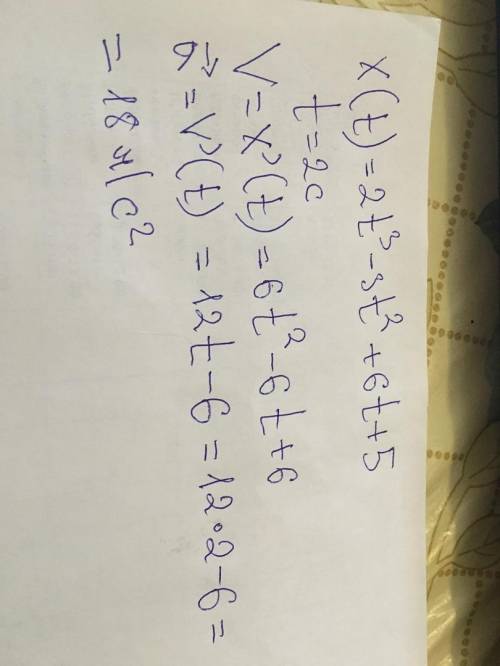 x(t) = 2t³ - 3t² + 6t + 5
t = 2c
V = x'(t) = 6t² - 6t + 6
a⃗ = V'(t) = 12t - 6 = 12 · 2 - 6 =
= 18 м/c²